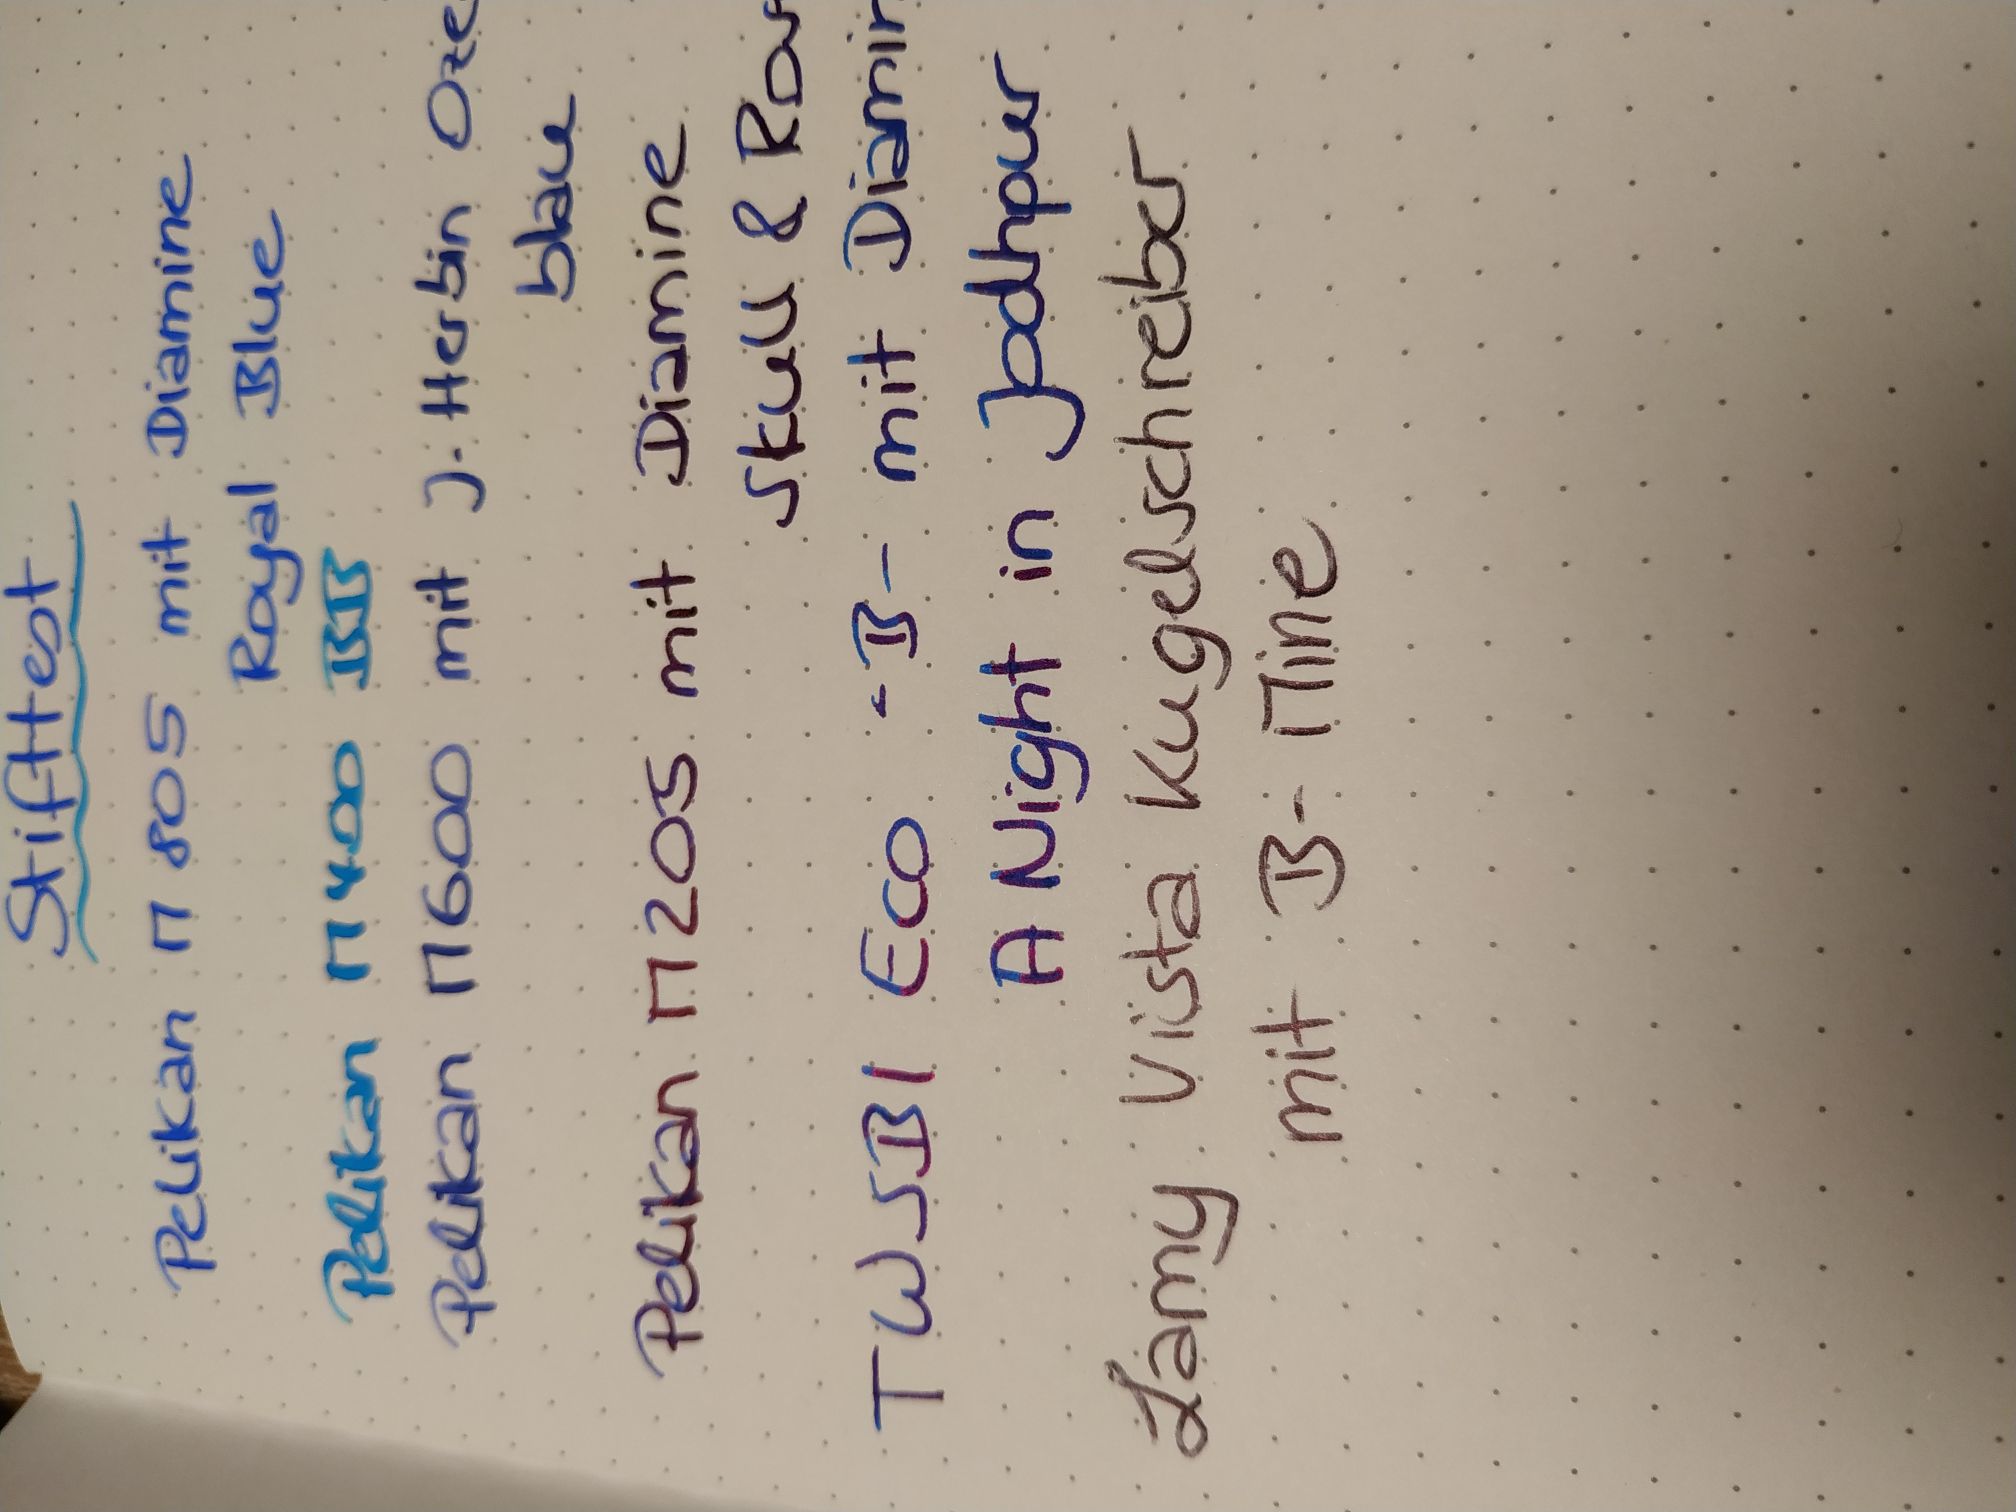 Stifttest
Pelikan M 805 mit Diamine
Royal Blue
Pelikan M400 BB
Pelikan M600 mit J. Herbin Oze
blau
Pelikan M205 mit Diamine
Skull & Ros
TWSBI Eco -B- mit Diamin
A Night in Jodhpur
Lamy Vista Kugelschreiber
mit B- Mine